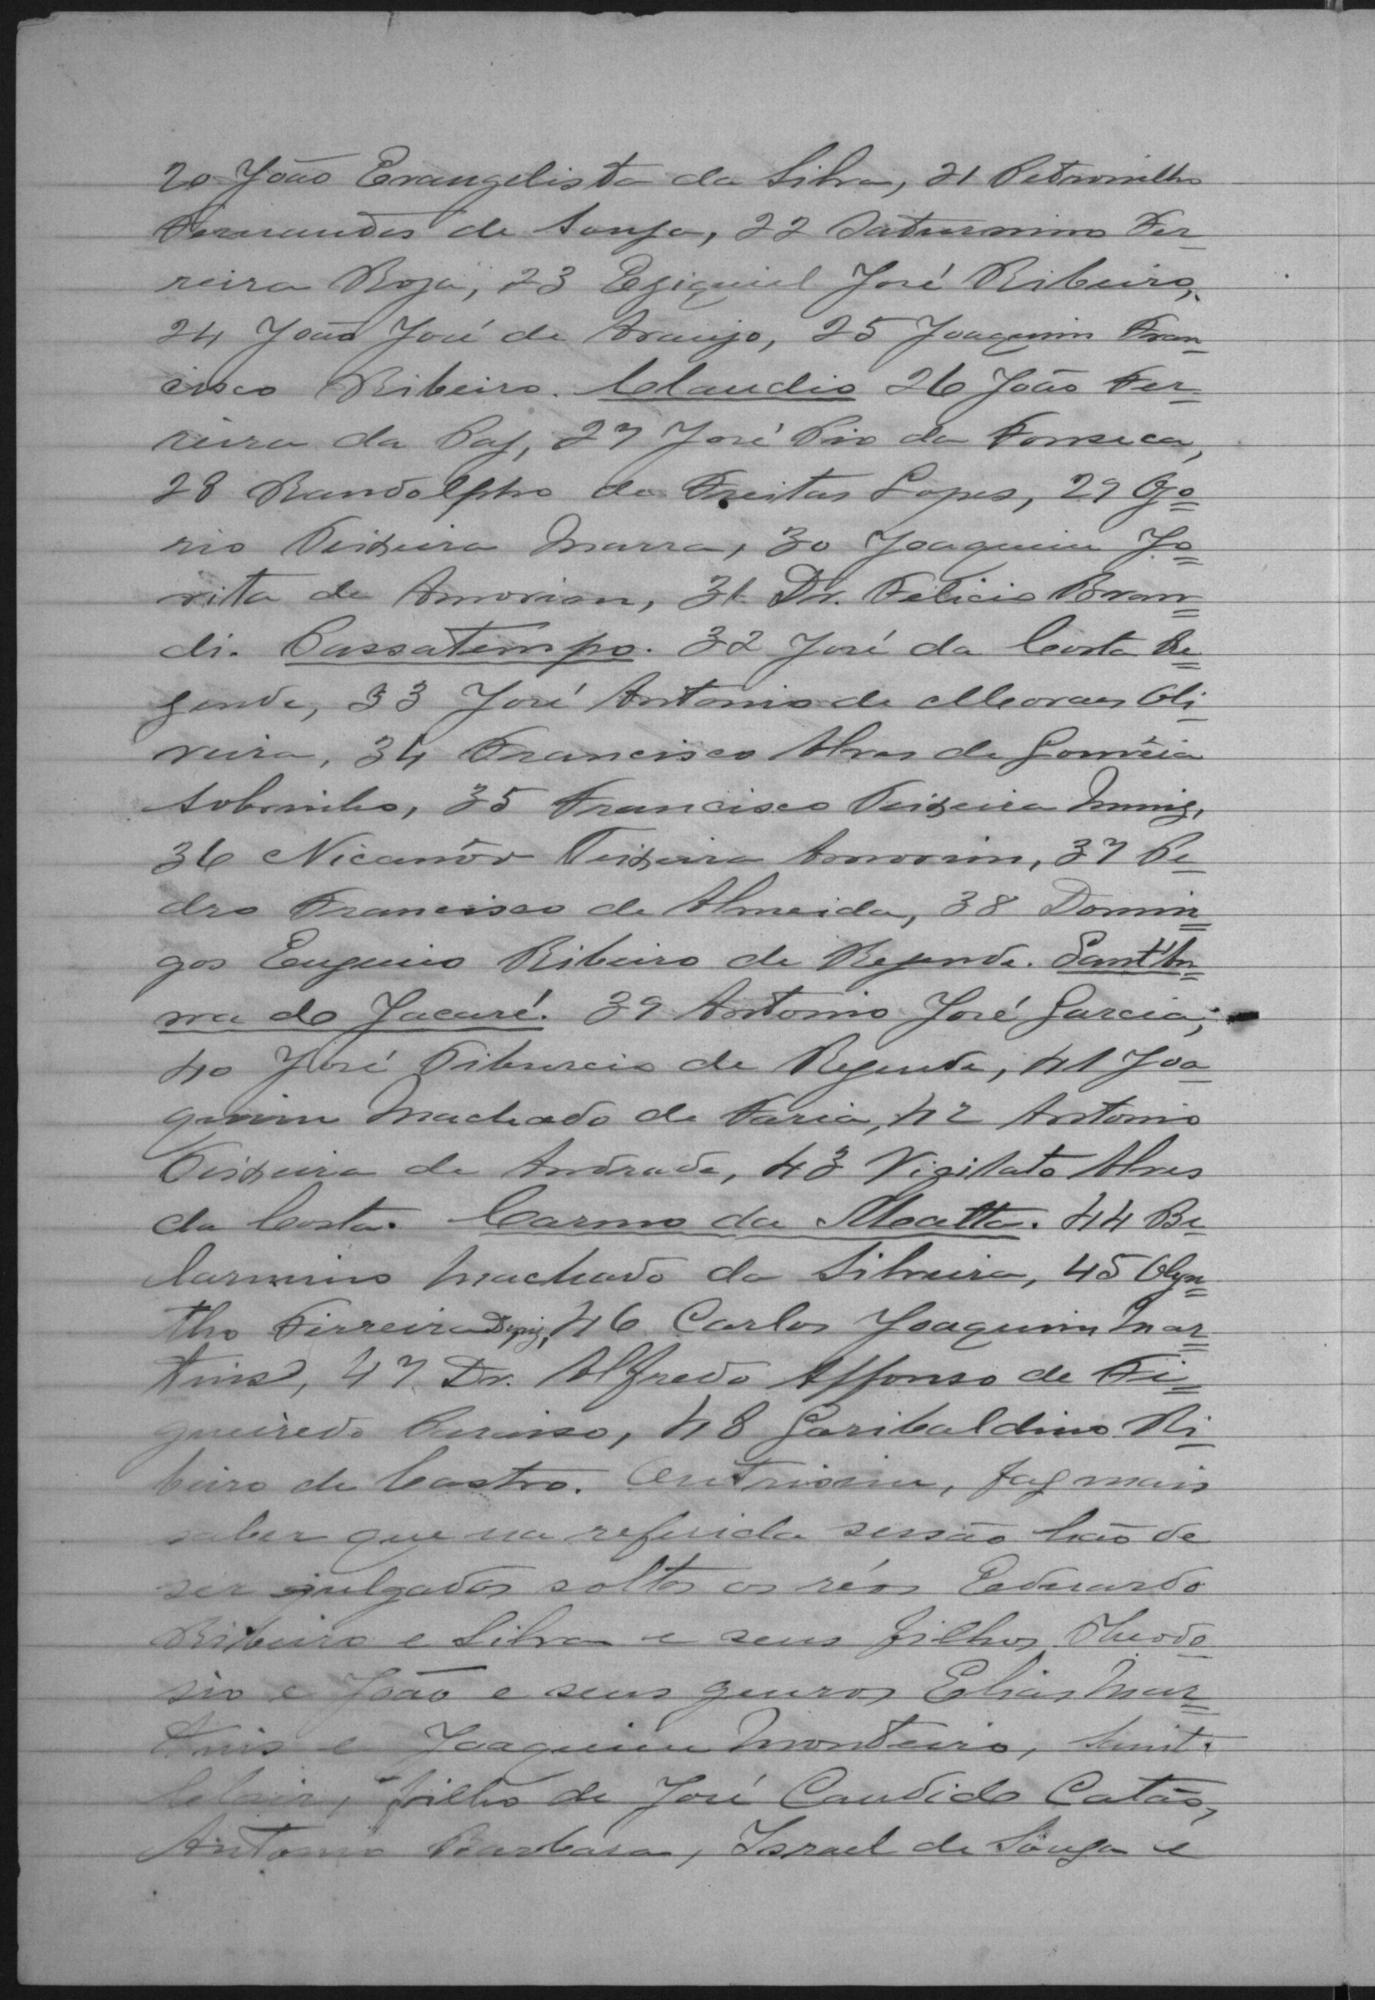 20 João Evangelista da Silva, 21 Petronilho
Fernandes de Souza, 22 Saturnino Fer=
reira Roza, 23 Eziquiel José Ribeiro,
24 João José de Araujo, 25 Joaquim Fran=
cisco Ribeiro. Claudio 26 João Fer=
reira da Paz, 27 José Pio da Fonseca,
28 Randolpho de Freitas Lopes, 29
rio Teixeira Marra, 30 Joaquim Jo=
vita de Amorim, 31 Dr. Felicio Bran=
di. Passatempo. 32 José da Costa Re=
zende, 33 José Antonio de Moraes Oli=
veira, 34 Francisco Alves de Gouvêia
Sobrinho, 35 Francisco Teixeira Muniz,
36 Nicanôr Teixeira Amorim, 37 Pe=
dro Francisco de Almeida, 38 Domin=
gos Eugenio Ribeiro de Rezende. Sant'An=
na do Jacaré. 39 Antonio José Garcia,
40 José Tiburcio de Rezende, 41 Joa=
quim Machado de Faria, 42 Antonio
Teixeira de Andrade, 43 Vigilato Alves
da Costa. Carmo da Matta. 44 Be=
larmino Machado da Silveira, 45 Olyn=
tho Ferreira Diniz, 46 Carlos Joaquim Mar=
tins, 47 Dr. Alfredo Affonso de Fi=
gueiredo Paraiso, 48 Garibaldino Ri=
beiro de Castro. Outrosim, faz mais
saber que na referida sessão hão de
ser julgados soltos os réos Eduardo
Ribeiro e Silva e seus filhos Theodo=
sio e João e seus genros Elias Mar=
tins e Joaquim Monteiro, Saint-
Clair, filho de José Candido Catão,
Antonio Barbara, Israel de Souza e